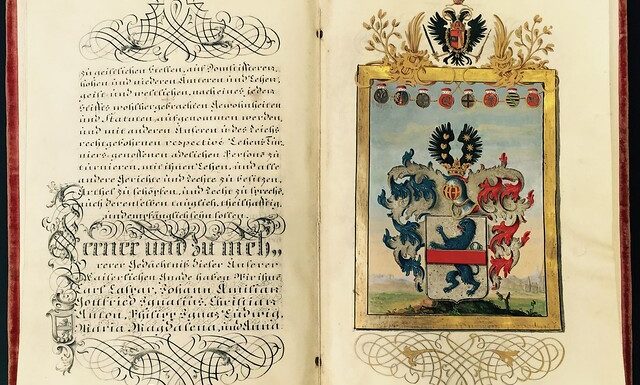 zu geistlichen Stellen, auf Domstifteren,
hohen und niederen Ämteren und Lehen,
geist- und weltlichen, nach eines jeden
Stifts wohlhergebrachten Gewohnheiten
und Statuten aufgenommen werden,
und mit anderen Unseren und des Reichs
rechtgebohrnen respective Lehens Tur-
niers-genossenen adelichen Persons zu
turnieren, mit ihnen Lehen, und alle
andere Gerichte und Rechte zu besitzen,
Urthel zu schöpfen, und Recht zu sprechen
auch derenselben tauglich, theilhaftig,
und empfänglich seyn sollen.
Ferner und zu meh-
rerer Gedächtniß dieser Unserer
Kaiserlichen Gnade haben Wir ihnen
Carl Caspar, Johann
Gottfried Ignatius, Christian
Anton, Philipp Ignaz Ludwig,
Maria Magdalena, und Anna